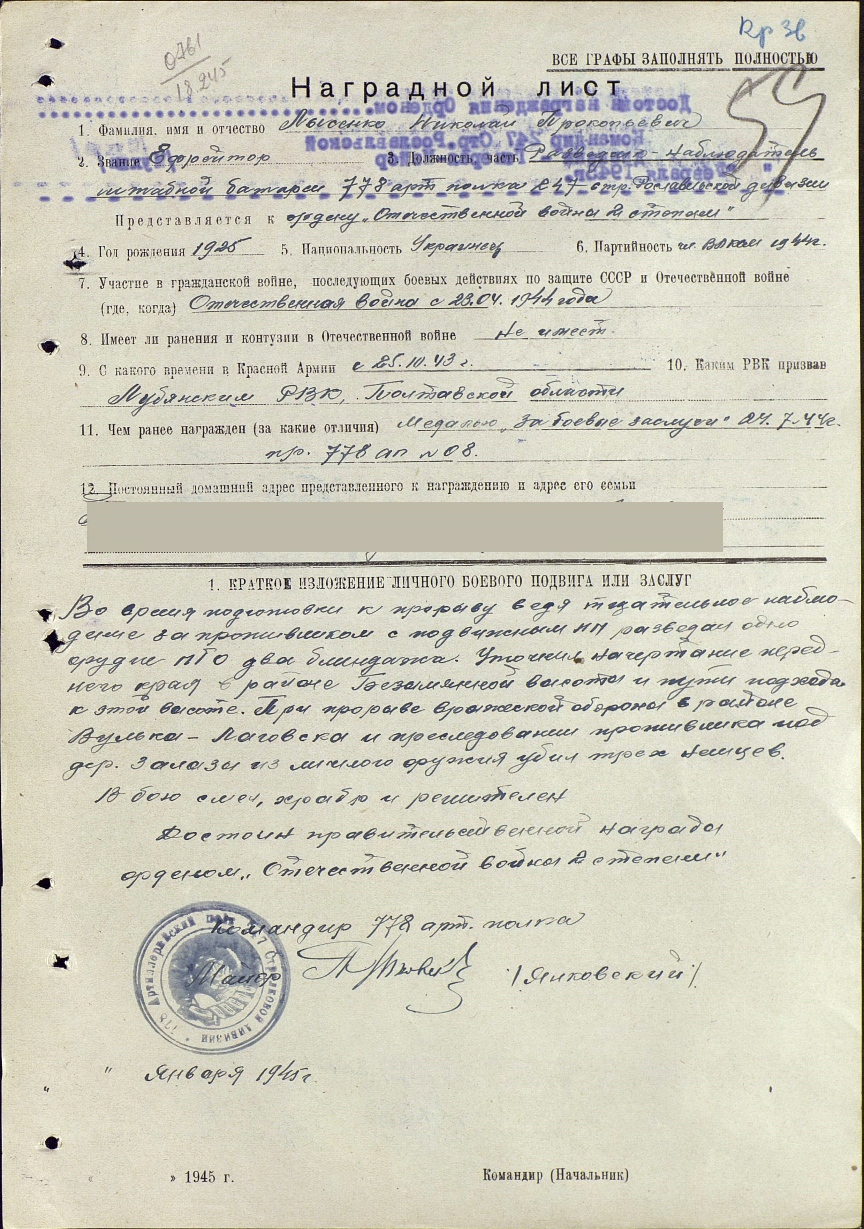 Кр 3в
0761
18.2.45
ВСЕ ГРАФЫ ЗАПОЛНЯТЬ ПОЛНОСТЬЮ
Наградной лист
1. Фамилия, имя и отчество Лысенко Николай Прокопьевич
2. Звание Ефрейтор 3. Должность, часть Разведчик-наблюдатель
штабной батареи 778 арт полка 247 стр. Рославльской дивизии
Представляется к ордену „Отечественной война 2 степени"
4. Год рождения 1925 5. Национальность Украинец 6. Партийность чл. ВЛКСМ 1944г.
7. Участие в гражданской войне, последующих боевых действиях по защите СССР и Отечественной войне
(где, когда) Отечественная война с 23.04.1944 года
8. Имеет ли ранения и контузии в Отечественной войне не имеет.
9. С какого времени в Красной Армии с 25.10.43 г. 10. Каким РВК призван
Лубянским РВК, Полтавской области
11. Чем ранее награжден (за какие отличия) Медалью „За боевые заслуги" 24.7.44г.
пр. 778 ап №08.
12. Постоянный домашний адрес представленного к награждению и адрес его семьи
1. КРАТКОЕ ИЗЛОЖЕНИЕ ЛИЧНОГО БОЕВОГО ПОДВИГА ИЛИ ЗАСЛУГ
Во время подготовки к прорыву ведя тщательное наблю-
дение за противником с подвижным НП разведал одно
орудие ПТО два блиндажа. Уточнил начертание перед-
него края в районе Безамянной высоты и пути подхода
к этой высоте. При прорыве вражеской обороны в районе
Вулька-Лаговска и преследовании противника под
дер. Залазы из личного оружия убил трех немцев.
В бою смел, храбр и решителен
Достоин правительственной награды
орденом „Отечественной война 2 степени"
Командир 778 арт. полка
Майор /Янковский/
" Января 1945г.
» 1945 г. Командир (Начальник)